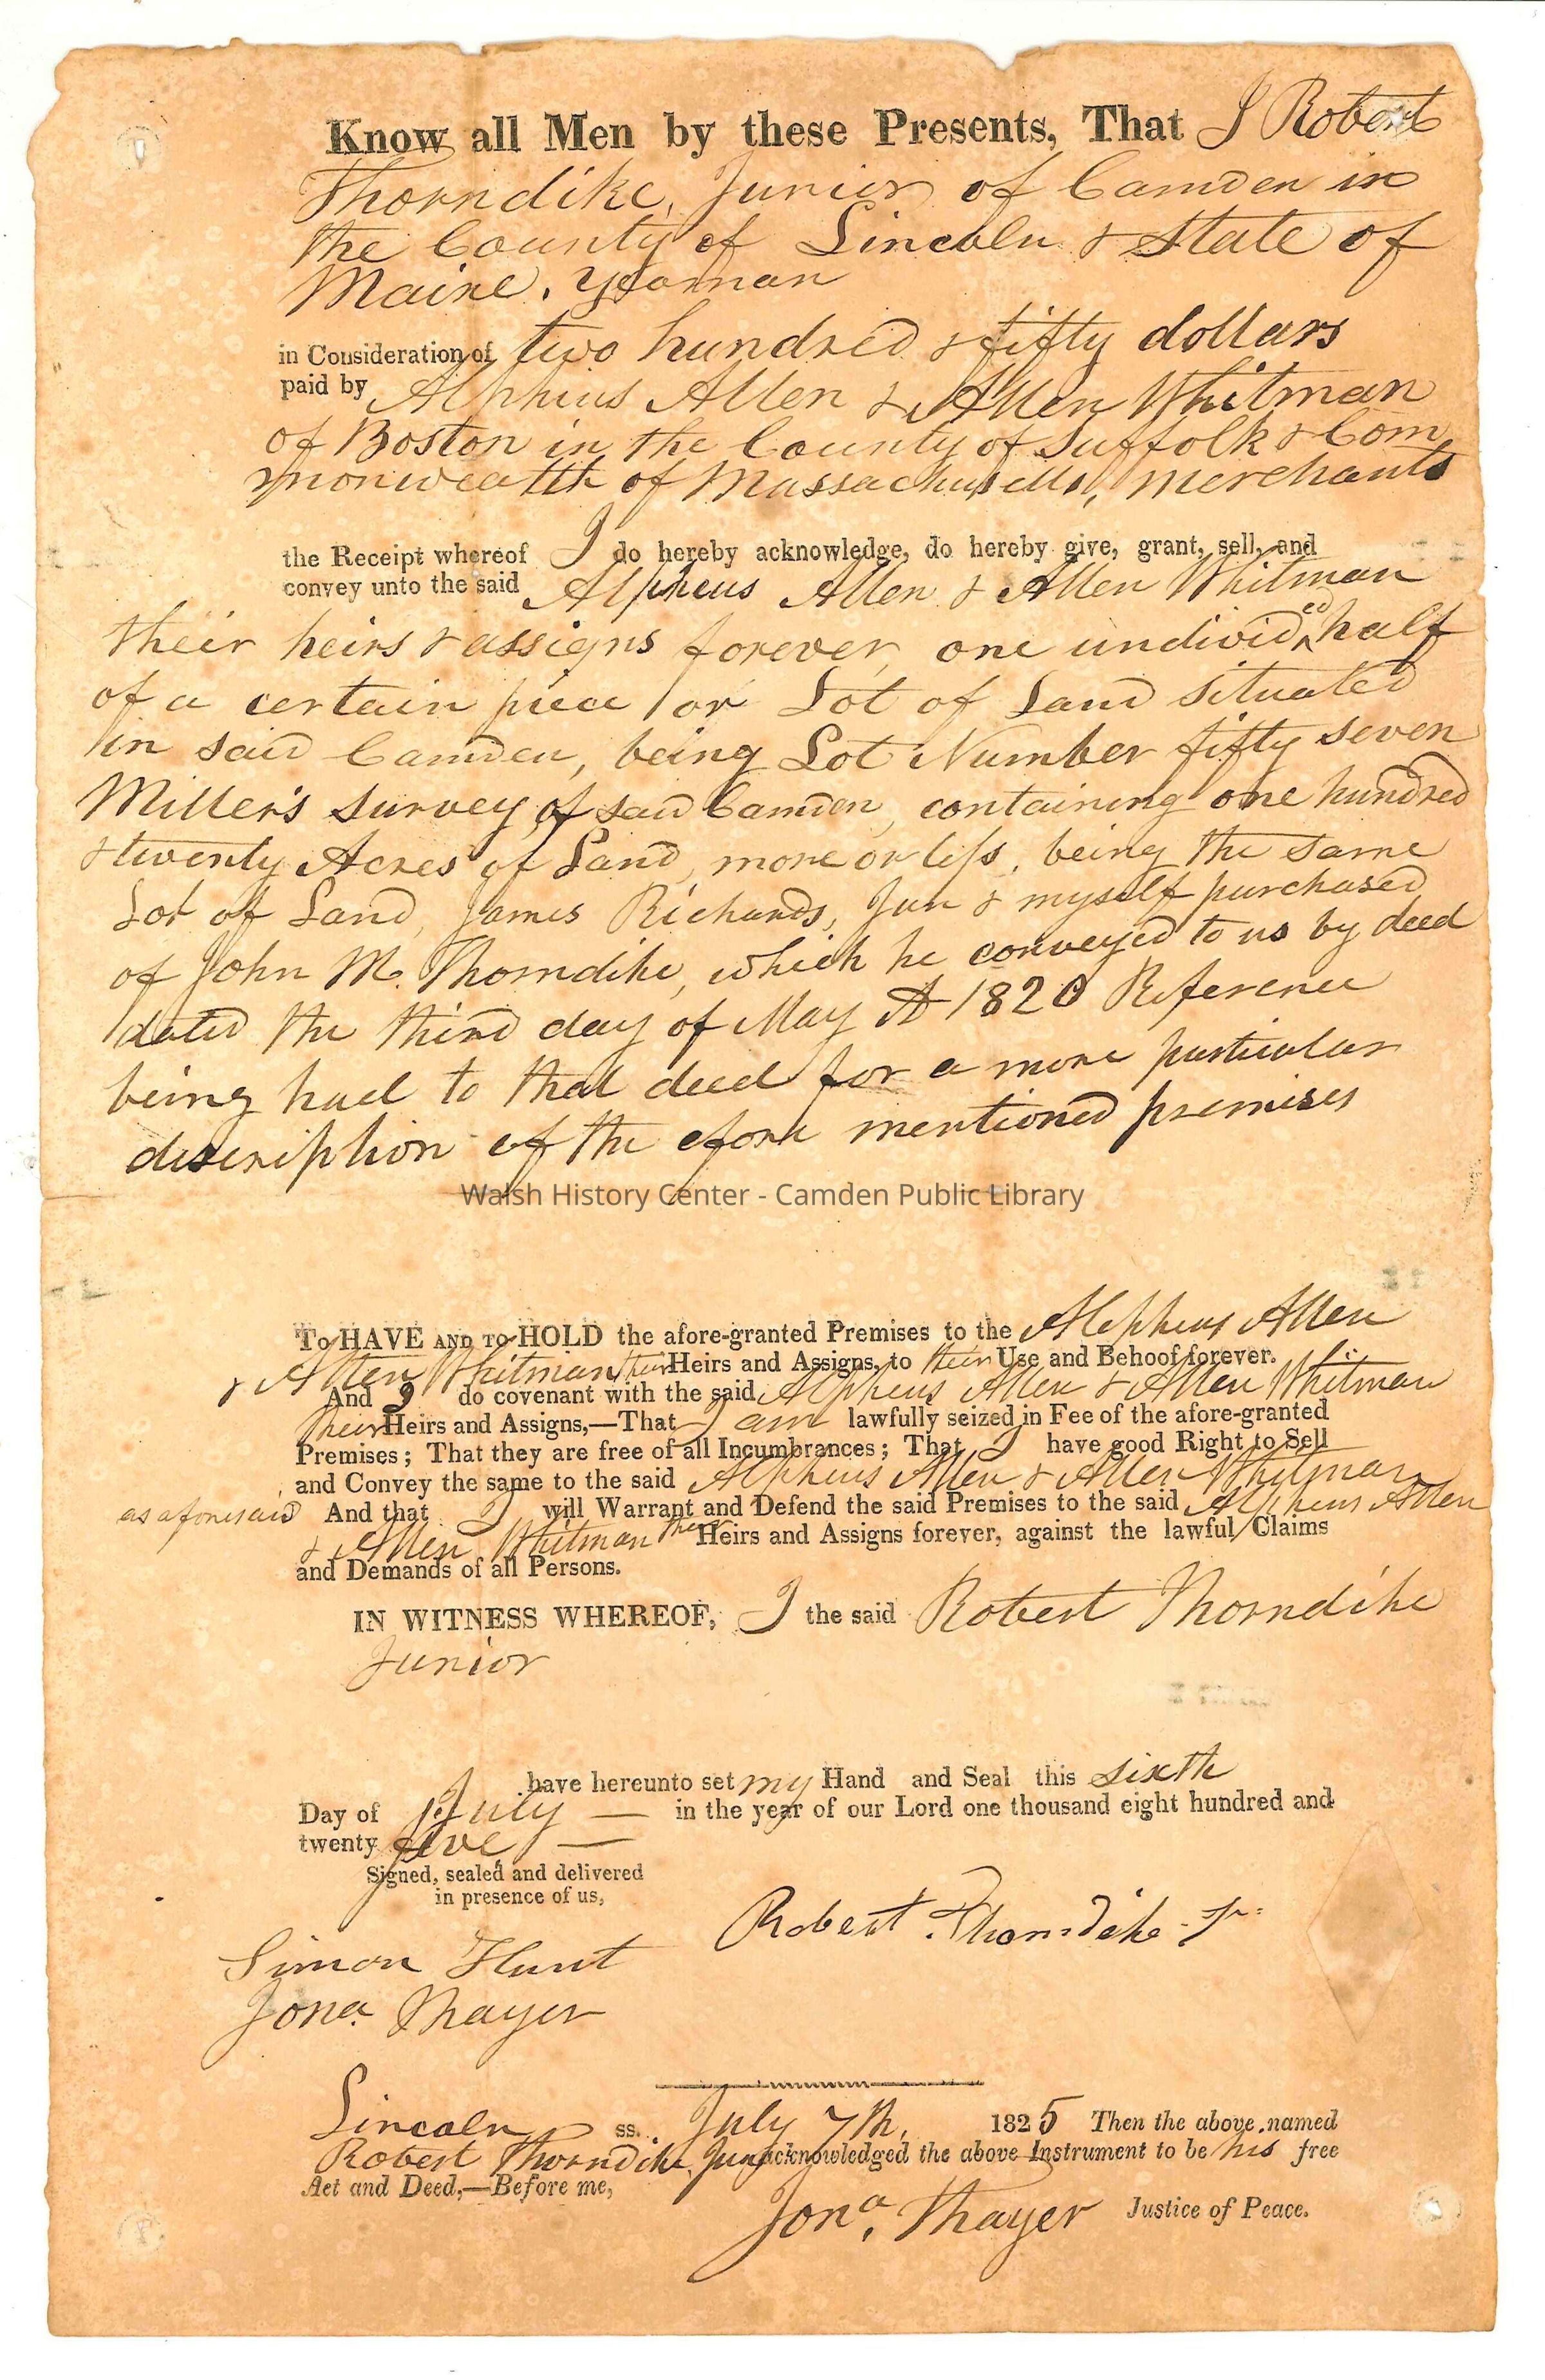 Know all Men by these Presents, That I Robert
Thorndike, Junior of Camden in
the County of Lincoln & State of
Maine, Yeoman
in Consideration of two hundred & fifty dollars
paid by Alpheus Allen & Allen Whitman
of Boston in the County of Suffolk & Com
monwealth of Massachusetts, merchants
the Receipt whereof I do hereby acknowledge, do hereby give, grant, sell, and
convey unto the said Alpheus Allen & Allen Whitman
their heirs & assigns forever, one undivid^ed half
of a certain piece or Lot of Land situated
in said Camden, being Lot Number fifty seven
Miller's survey of said Camden, containing one hundred
& twenty Acres of Land, more or less, being the same
Lot of Land, James Richards, Jun & myself purchased
of John M. Thorndike, which he conveyed to us by deed
dated the third day of May A 1820 Reference
being had to that deed for a more particular
discription of the afore mentioned premises
Walsh History Center - Camden Public Library
To HAVE AND TO HOLD the afore-granted Premises to the Alepheus Allen
& Allen Whitman their Heirs and Assigns, to their Use and Behoof forever.
And I do covenant with the said Alpheus Allen & Allen Whitman
their Heirs and Assigns,—That I am lawfully seized in Fee of the afore-granted
Premises; That they are free of all Incumbrances; That I have good Right to Sell
and Convey the same to the said Alpheus Allen & Allen Whitman
as aforesaid And that I will Warrant and Defend the said Premises to the said Alpheus Allen
& Allen Whitman their Heirs and Assigns forever, against the lawful Claims
and Demands of all Persons.
IN WITNESS WHEREOF, I the said Robert Thorndike
Junior
have hereunto set my Hand and Seal this sixth
Day of July — in the year of our Lord one thousand eight hundred and
twenty five —
Signed, sealed and delivered
in presence of us,
Robert Thorndike Jr:
Simon Hunt
Jona. Thayer
Lincoln ss. July 7th, 1825 Then the above named
Robert Thorndike Jun acknowledged the above Instrument to be his free
Act and Deed,—Before me,
Jona. Thayer Justice of Peace.